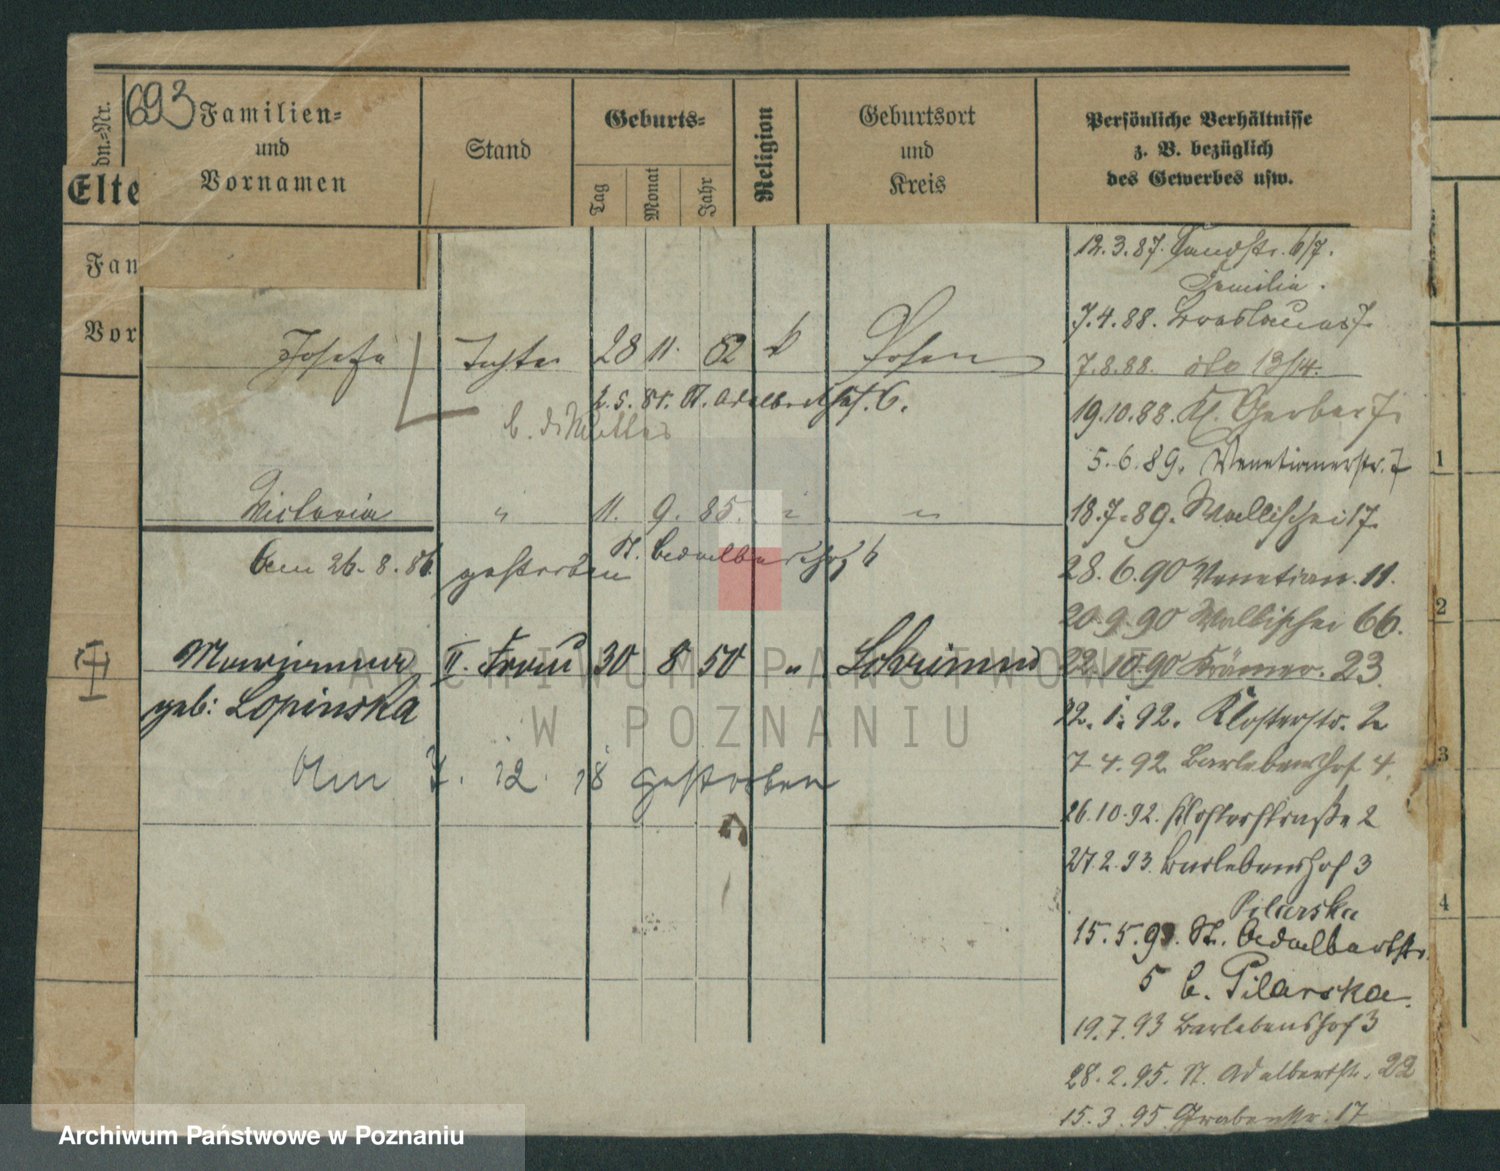 693
dn.-Nr.
Familien-
und
Vornamen
Stand
Geburts-
Tag
Monat
Jahr
Religion
Geburtsort
und
Kreis
Persönliche Verhältnisse
z. B. bezüglich
des Gewerbes usw.
Elte
Fam
Vor
Josefa Tochter 28 11. 82 k Posen
2.5.81. St. Adalberthof. 6.
b. d. Mutter
Victoria " 11. 9. 85. " "
Am 26.8.86 gestorben
St. Adalberthof 6
Marianna II. Frau 30 8 50 " Schrimm
geb: Lopinska
Am 7. 12. 18 gestorben
12.3.87. Sandstr. 6/7.
Familie.
7.4.88. 7.
7.8.88. dto 13/14.
19.10.88. Kl. Gerber 7.
5.6.89. Venetianerstr. 7
18.7.89. Wallischei 17.
28.6.90 Venetian. 11.
20.9.90 Wallischei 66.
22.10.90 Krämer. 23.
22.1.92. Klosterstr. 2
7.4.92 Barlebenshof 4.
26.10.92. Klosterstraße 2
27.2.93. Barlebenshof 3
Pilarska
15.5.93. St. Adalbertstr.
5 b. Pilarska.
19.7.93 Barlebenshof 3
28.2.95. St. Adalbertstr. 22
15.3.95 Grabenstr. 17
1
2
3
4
ARCHIWUM PAŃSTWOWE
W POZNANIU
Archiwum Państwowe w Poznaniu